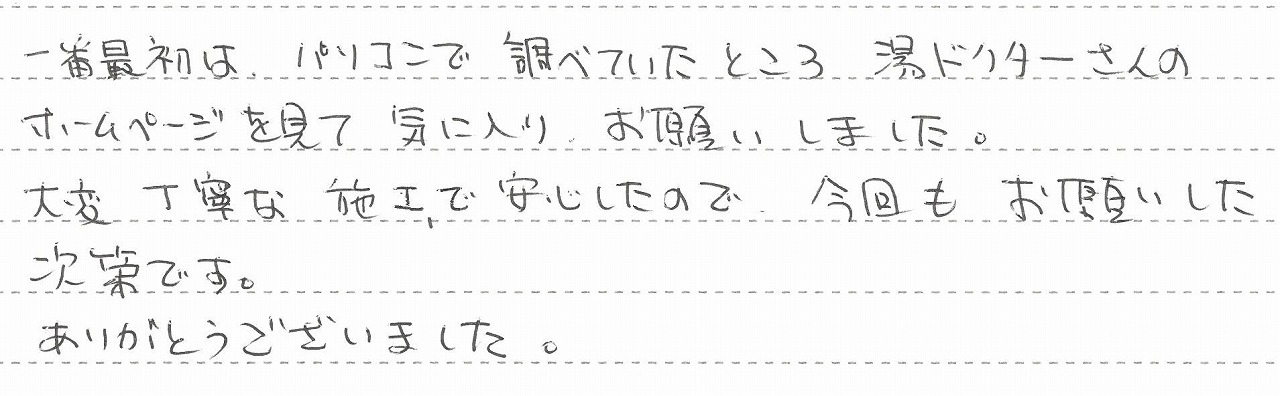 一番最初は、パソコンで 調べていたところ 湯ドクターさんの
ホームページを見て 気に入り、お願いしました。
大変 丁寧な 施工で 安心したので、今回も お願いした
次第です。
ありがとうございました。